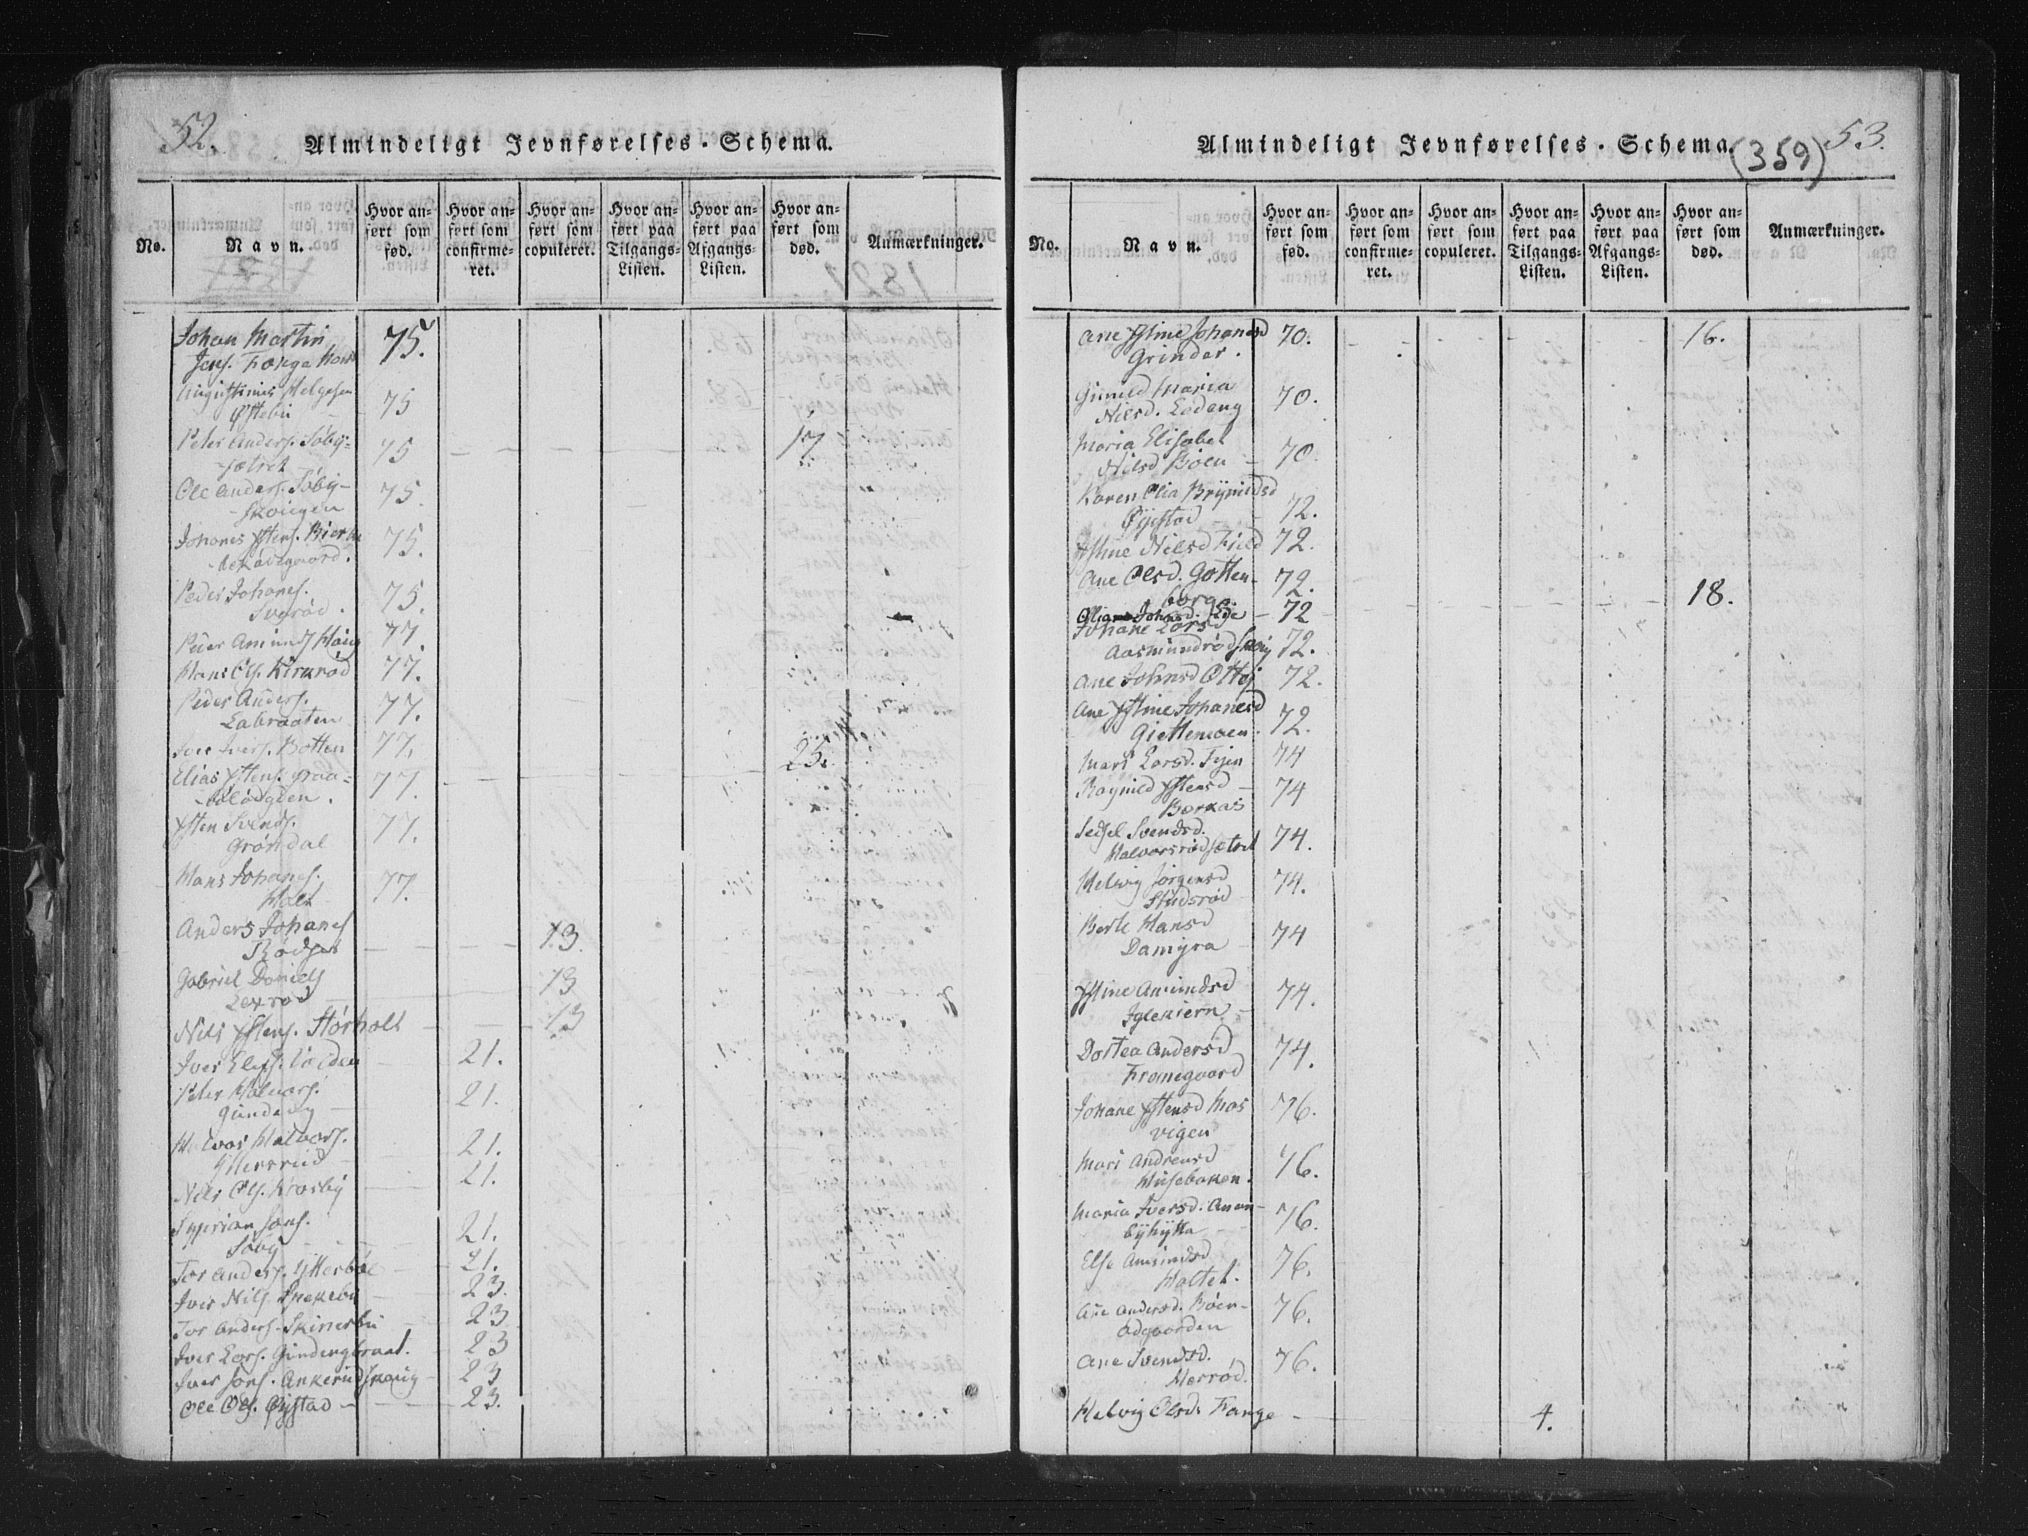 52.
Almindeligt Jevnførelses-Schema.
No.
Navn.
Hvor anført som fød.
Hvor anført som confirmeret.
Hvor anført som copuleret.
Hvor anført paa Tilgangs-Listen.
Hvor anført paa Afgangs-Listen.
Hvor anført som død.
Anmærkninger.
Johan Martin
Jens. Fange 75.
Augustinus Helgesen
Østebu 75
Peter Anders. Søby-
sætret 75 17
Ole Anders. Søby-
Skougen 75.
Johanes Xstens. Bierke
75.
Peder Johanes.
Sverød. 75.
Peder Amunds Houg 77.
Hans Ols. Kirkrød 77.
Peder Anders.
Labraaten 77.
Iver Ivers. Botten 77.
Elias Xstens. Graa-
77. 25.
Xsten Svends.
Grøndal 77.
Hans Johanes.
Holt 77.
Anders Johanes
Rødser 13.
Gabriel Daniels
Lexrød 13
Nils Xstens. Størholt 13
Iver Elefs. Volden 21.
Peter Halvors.
Gundeng 21.
Halvor Halvors.
Ytterrud 21.
Nils Ols. Krosby 21.
Syprian Jons.
Søby 21.
Tor Anders. Ytterbøe 21.
Iver Nils. Snekeby 23.
Tor Anders. Skinerbu 23
Iver Lars. Gundengbraat. 23
Iver Jons. Ankerudskoug 23
Ole Ols. Øystad 23.
Almindeligt Jevnførelses-Schema.
(359)
53.
No.
Navn.
Hvor anført som fød.
Hvor anført som confirmeret.
Hvor anført som copuleret.
Hvor anført paa Tilgangs-Listen.
Hvor anført paa Afgangs-Listen.
Hvor anført som død.
Anmærkninger.
Ane Xstine Johanesd
Grinder. 70. 16.
Gunild Maria
Nilsd. Lodeng 70.
Maria Elisabet
Nilsd Böen 70.
Karen Olia Brynildsd
Øystad 72.
Xstine Nilsd Field 72.
Ane Olsd. Gotten-
borg. 72.
Johansd. Ede 72 18.
Johane Larsd
Aasmundrødskoug 72.
Ane Johnsd Ottej 72.
Ane Xstine Johanesd
Giettemoen 72.
Mari Larsd. Tejen 74
Ragnild Xstensd
Borkas 74
Sedsel Svendsd.
Halvorsrødsætret 74.
Helvig Jørgensd
Studsrød 74.
Berte Hansd
Damyra 74
Xstine Amundsd
Iglekiern 74.
Dortea Andersd
Fromegaard 74.
Johane Xstensd Mos
vigen 76.
Mari Andreasd
Husebakken. 76.
Maria Iversd.
76.
Else Amundsd
Holtet. 76.
Ane Andersd. Böen-
ødgaarden 76.
Ane Svendsd.
Merrød. 76.
Helvig Olsd. Fange 4.